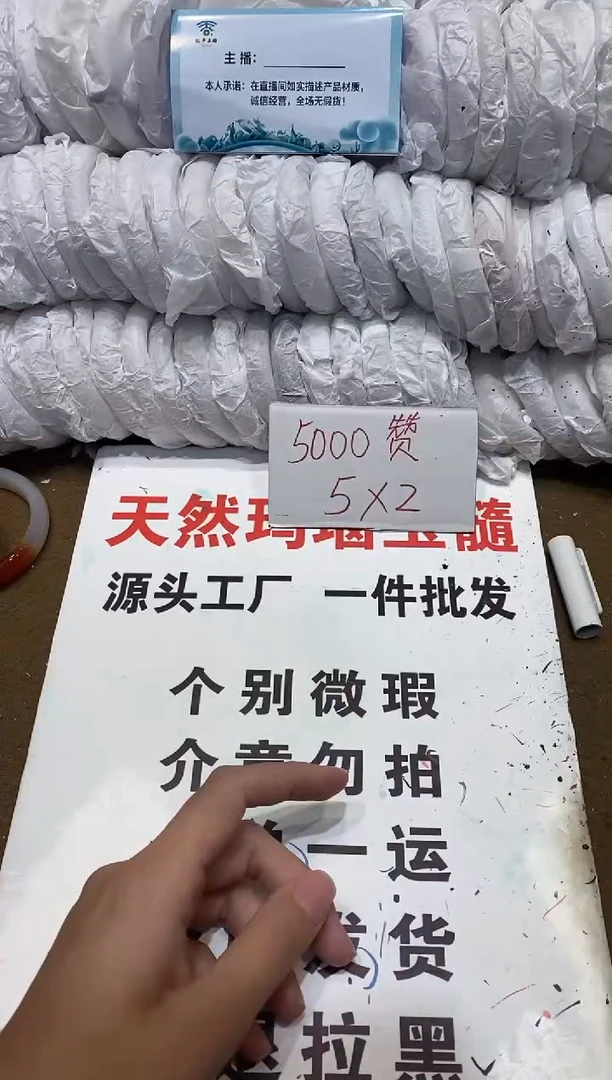 主播:
本人承诺:在直播间如实描述产品材质,
诚信经营,全场无假货!
5000赞
5X2
天然玛瑙玉髓
源头工厂 一件批发
个别微瑕
介意勿拍
一运
发货
退拉黑